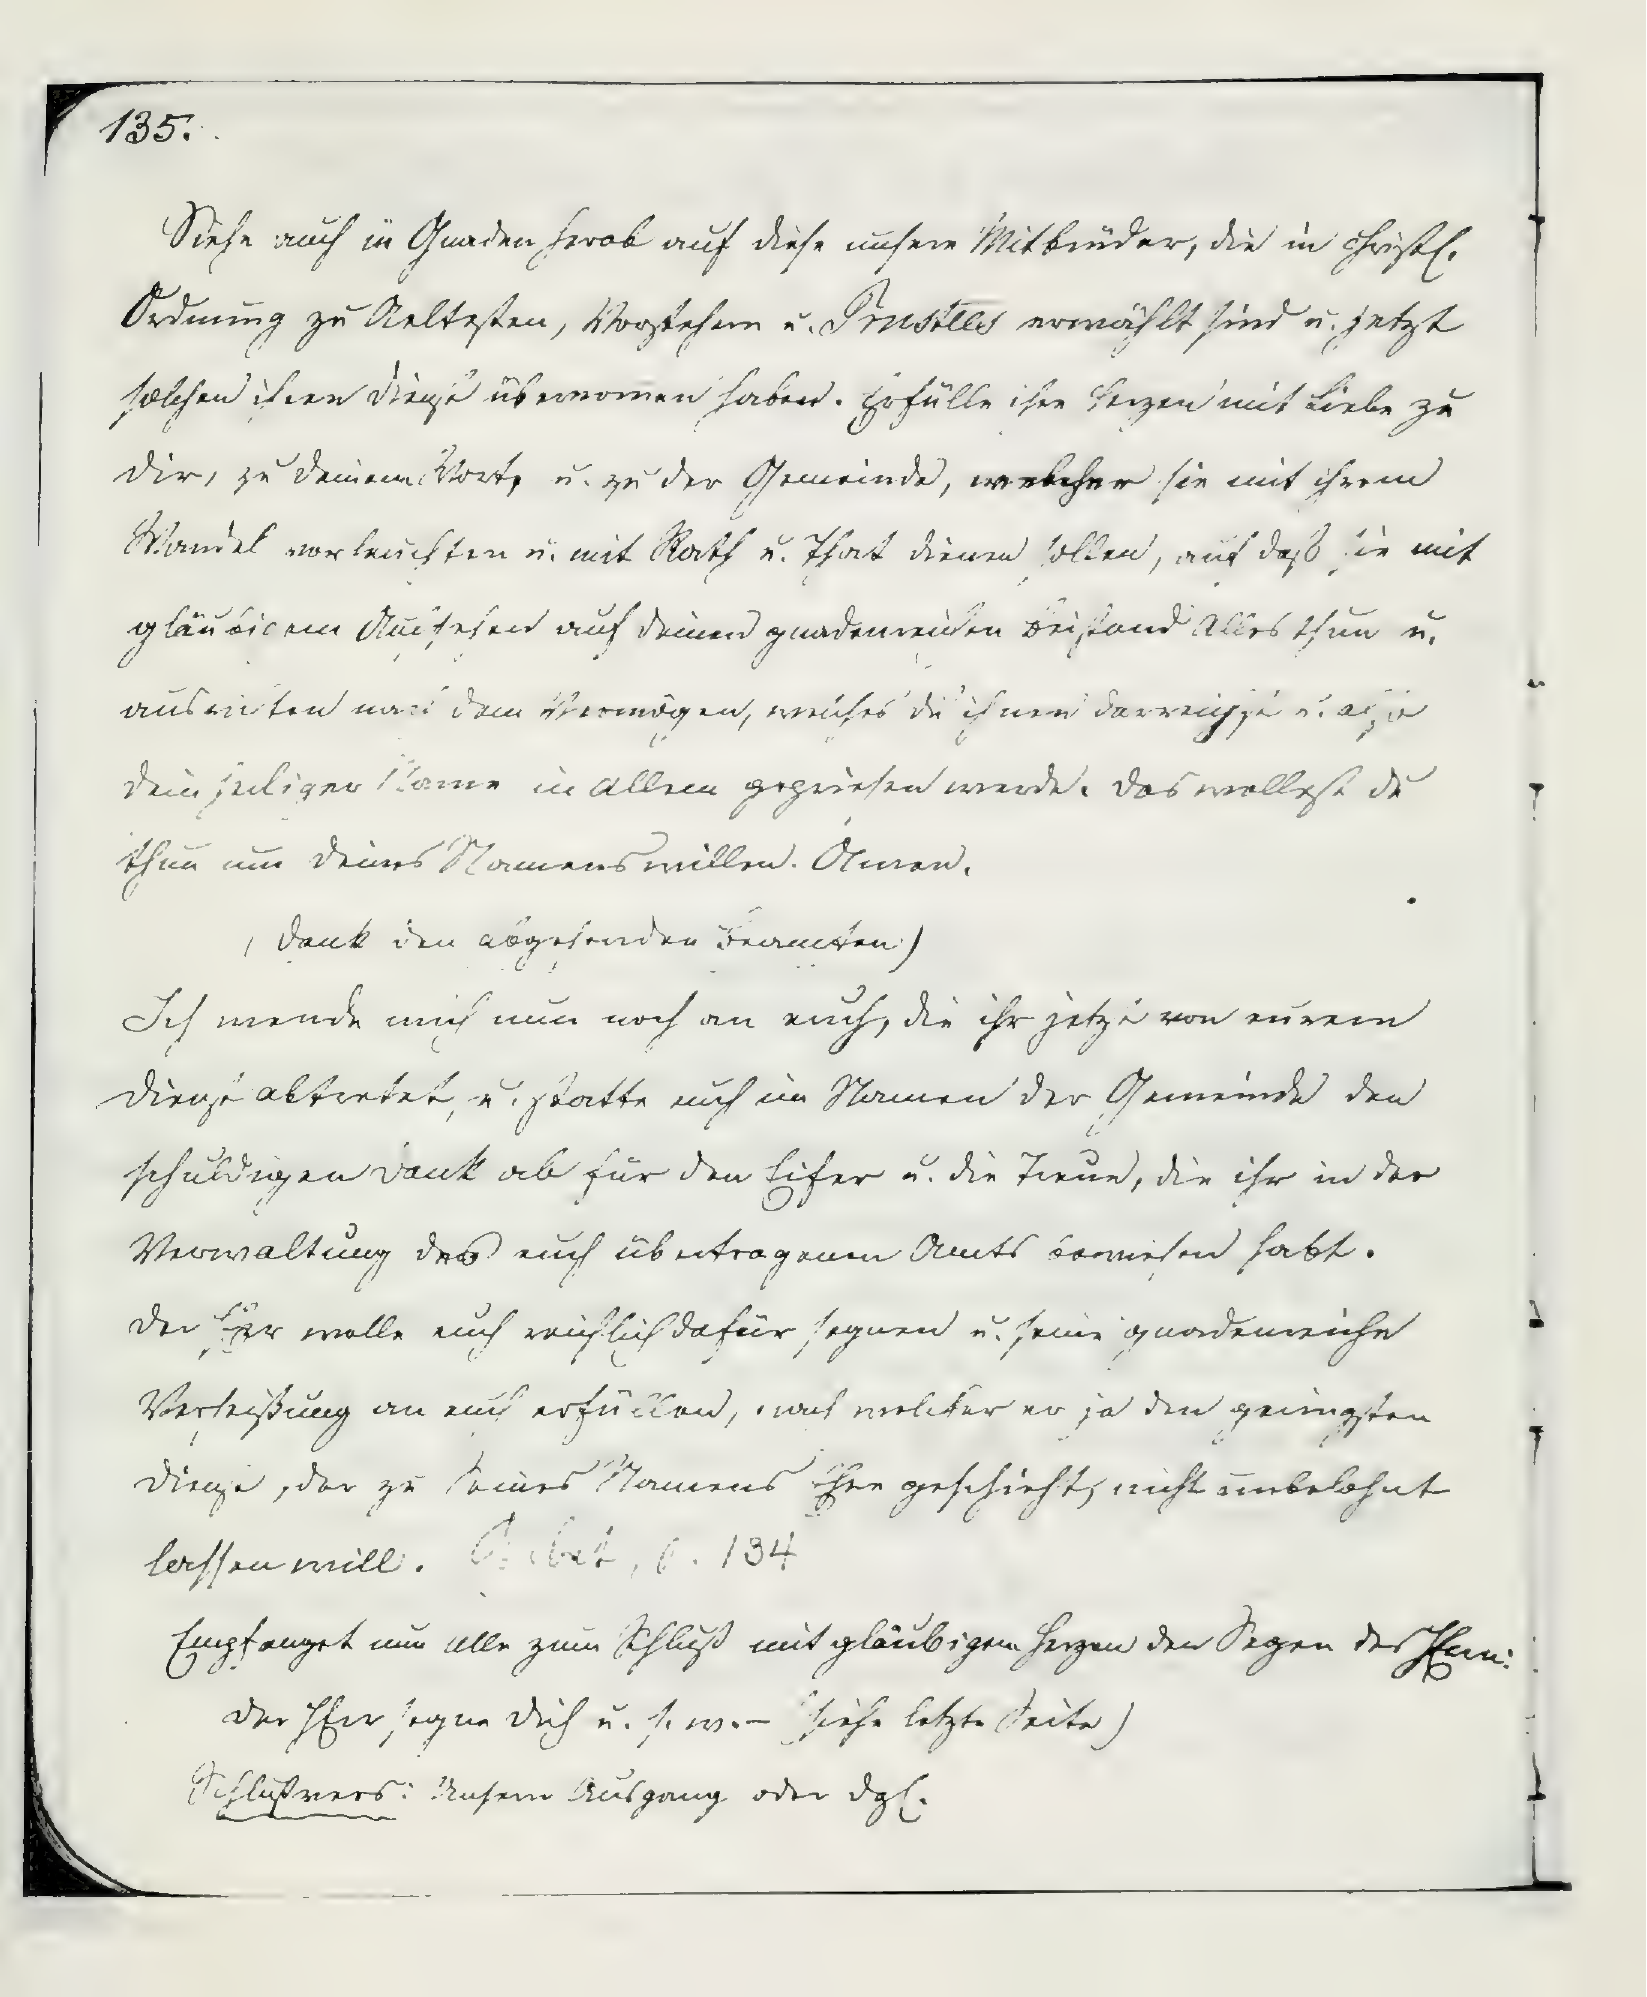 135.
Siehe auch in Gnaden herab auf diese unsere Mitbrüder, die in christl.
Ordnung zu Aeltesten, Vorstehern u. Trustees erwählt sind u. jetzt
solchen ihren Dienst übernomen haben. Erfülle ihre Herzen mit Liebe zu
dir, zu deinem Wort, u. zu der Gemeinde, welcher sie mit ihrem
Wandel vorleuchten u. mit Rath u. That dienen sollen, auf daß sie mit
gläubigem Aufsehen auf deinen gnadenreichen Beistand Alles thun u.
ausrichten nach dem Vermögen, welches du ihnen darreichst u. also
dein heiliger Name in Allem gepriesen werde. Das wollest du
thun um deines Namens willen. Amen.
(Dank den abgehenden Beamten)
Ich wende mich nun noch an euch, die ihr jetzt von eurem
Dienst abtretet, u. statte euch im Namen der Gemeinde den
schuldigen Dank ab für den Eifer u. die Treue, die ihr in der
Verwaltung des euch übertragenen Amts bewiesen habt.
Der HErr wolle euch reichlich dafür segnen u. seine gnadenreiche
Verheißung an euch erfüllen, nach welcher er ja den geringsten
Dienst, der zu seines Namens Ehre geschieht, nicht unbelohnt
lassen will. Gebet, S. 134
Empfanget nun alle zum Schluß mit gläubigem Herzen den Segen des HErrn:
Der HErr segne dich u. s. w. – (siehe letzte Seite)
Schlußvers: Unsern Ausgang oder dgl.